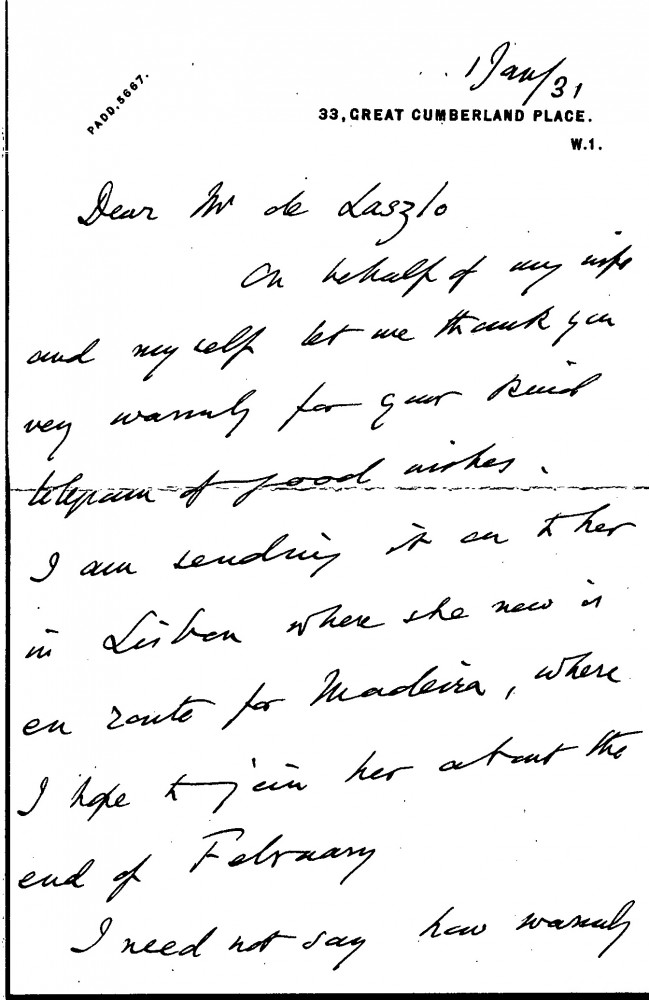 1 Jan/31
PADD. 5667.
33, GREAT CUMBERLAND PLACE.
W.1.
Dear Mr de Laszlo
On behalf of my wife
and myself let me thank you
very warmly for your kind
telegram of good wishes.
I am sending it on to her
in Lisbon where she now is
en route for Madeira, where
I hope to join her about the
end of February
I need not say how warmly